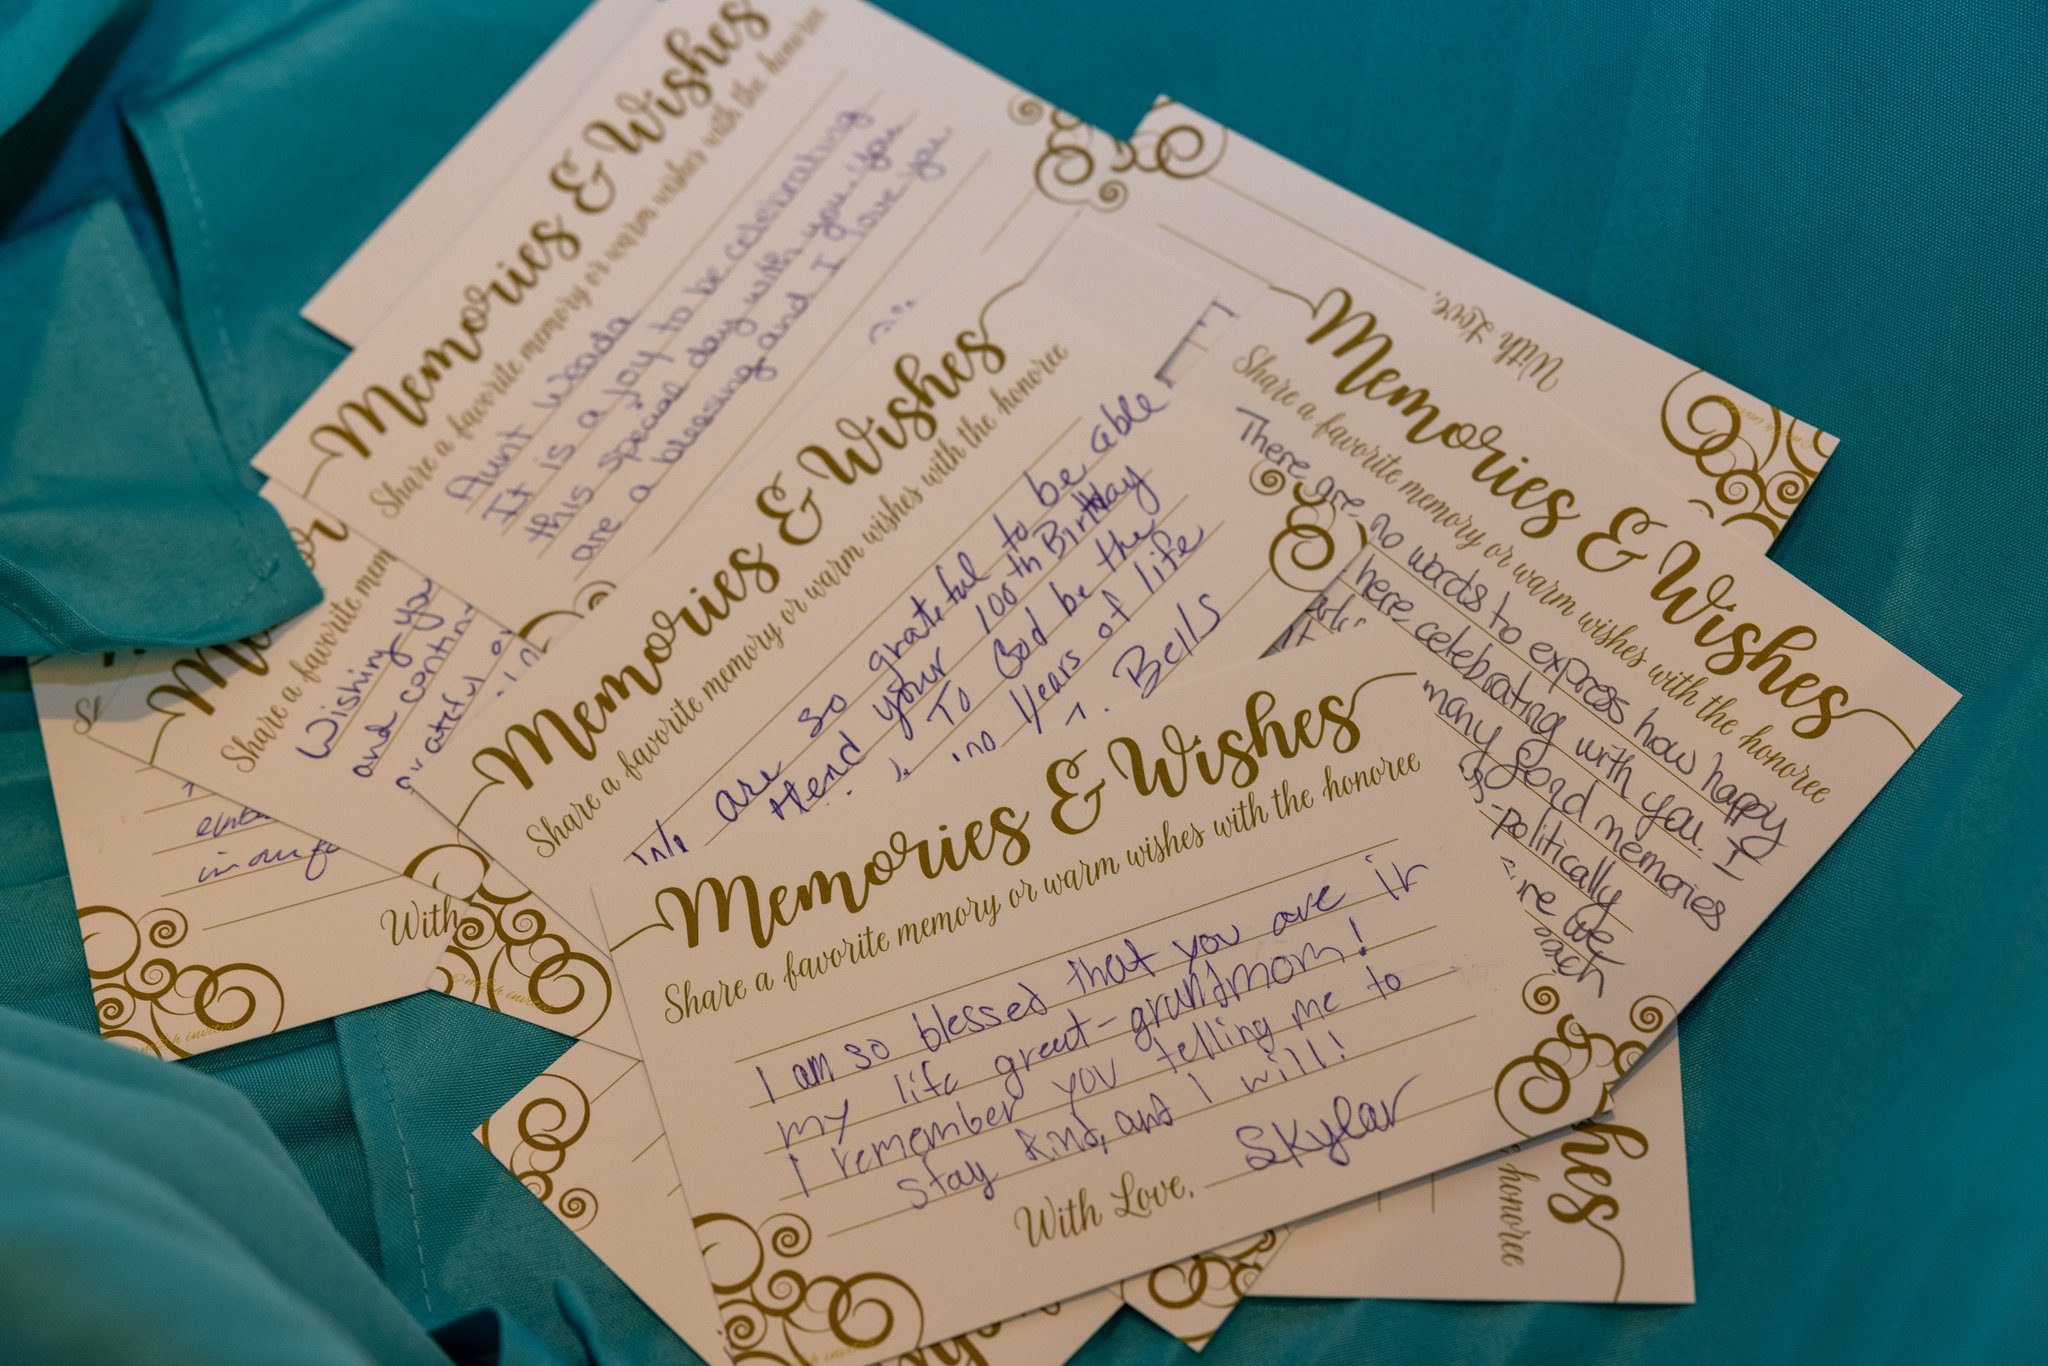 Memories & Wishes
Share a favorite memory or warm wishes with the honoree
Aunt
It is a joy to be celebrating
this special day with you. You
are a blessing and I love you
Memories & Wishes
Share a favorite memory or warm wishes with the honoree
We are so grateful to be able
Attend your 100th Birthday
To God be the
Years of life
Bells
Memories & Wishes
Share a favorite memory or warm wishes with the honoree
I am so blessed that you are in
my life great-grandmom!
I remember you telling me to
stay kind, and I will!
With Love, Skylar
With Love,
Memories & Wishes
Share a favorite memory or warm wishes with the honoree
There are no words to express how happy
here celebrating with you. I
many good memories
politically
we
Share a favorite mem
Wishing you
and contin
in our
With
hes
honoree